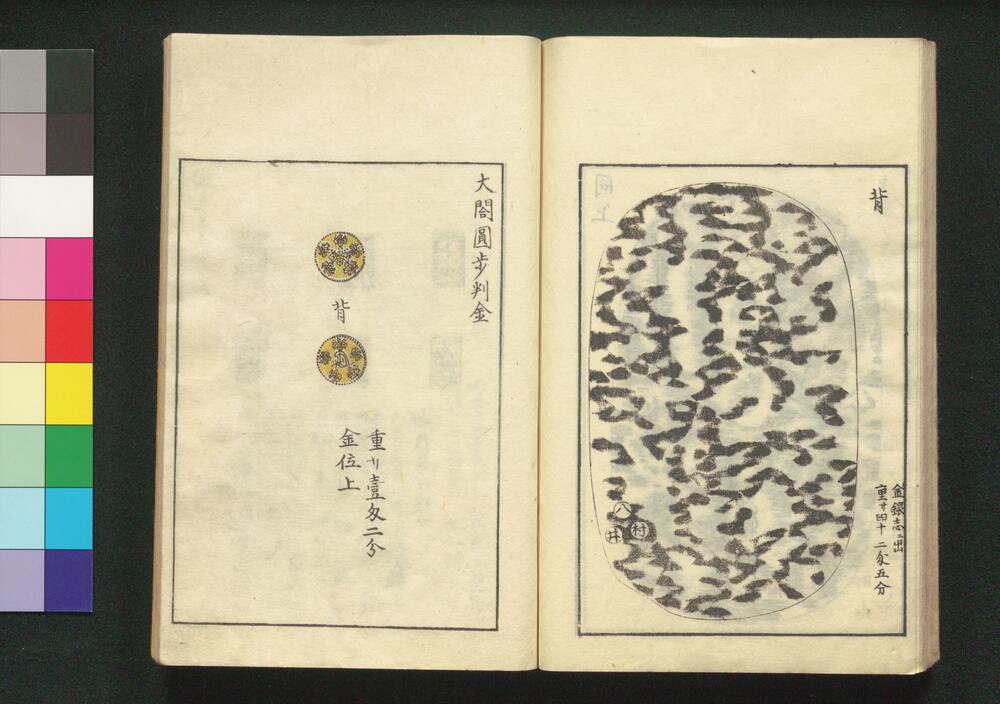 背
金銀志ニ出
重サ四十二匁五分
八
村
井
大閤圓歩判金
背
重サ壹匁二分
金位上